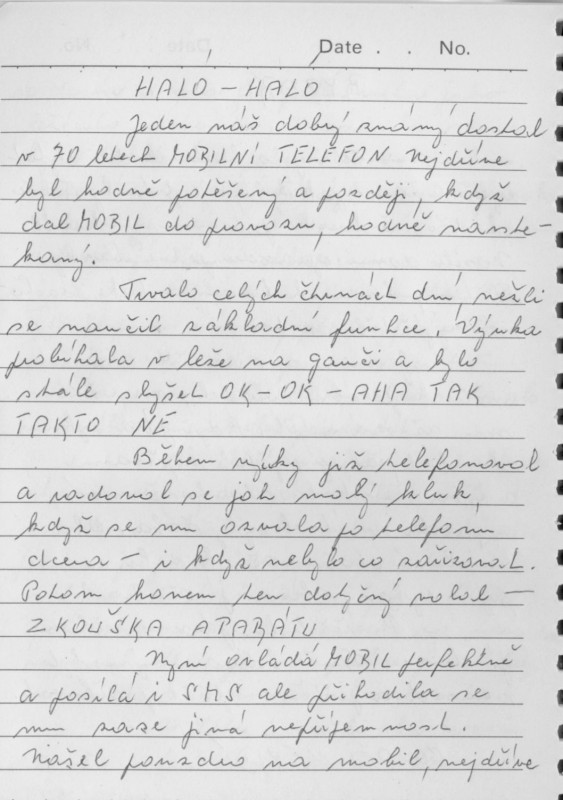 Date . . No.
HALÓ - HALÓ
Jeden náš dobrý známý dostal
v 70 letech MOBILNÍ TELEFON Nejdříve
byl hodně potěšený a později, když
dal MOBIL do provozu, hodně navzte-
kaný.
Trvalo celých čtrnáct dní, nežli
se naučil základní funkce. Výuka
probíhala v leže na gauči a bylo
stále slyšet OK - OK - AHA TAK
TAKTO NE
Během výuky již telefonoval
a radoval se jak malý kluk,
když se mu ozvala po telefonu
dcera - i když nebylo co zařizovat.
Potom honem ten dotyčný volal -
ZKOUŠKA APARÁTU
Nyní ovládá MOBIL perfektně
a posílá i SMS ale přihodila se
mu zase jiná nepříjemnost.
Našel pouzdro na mobil, nejdříve